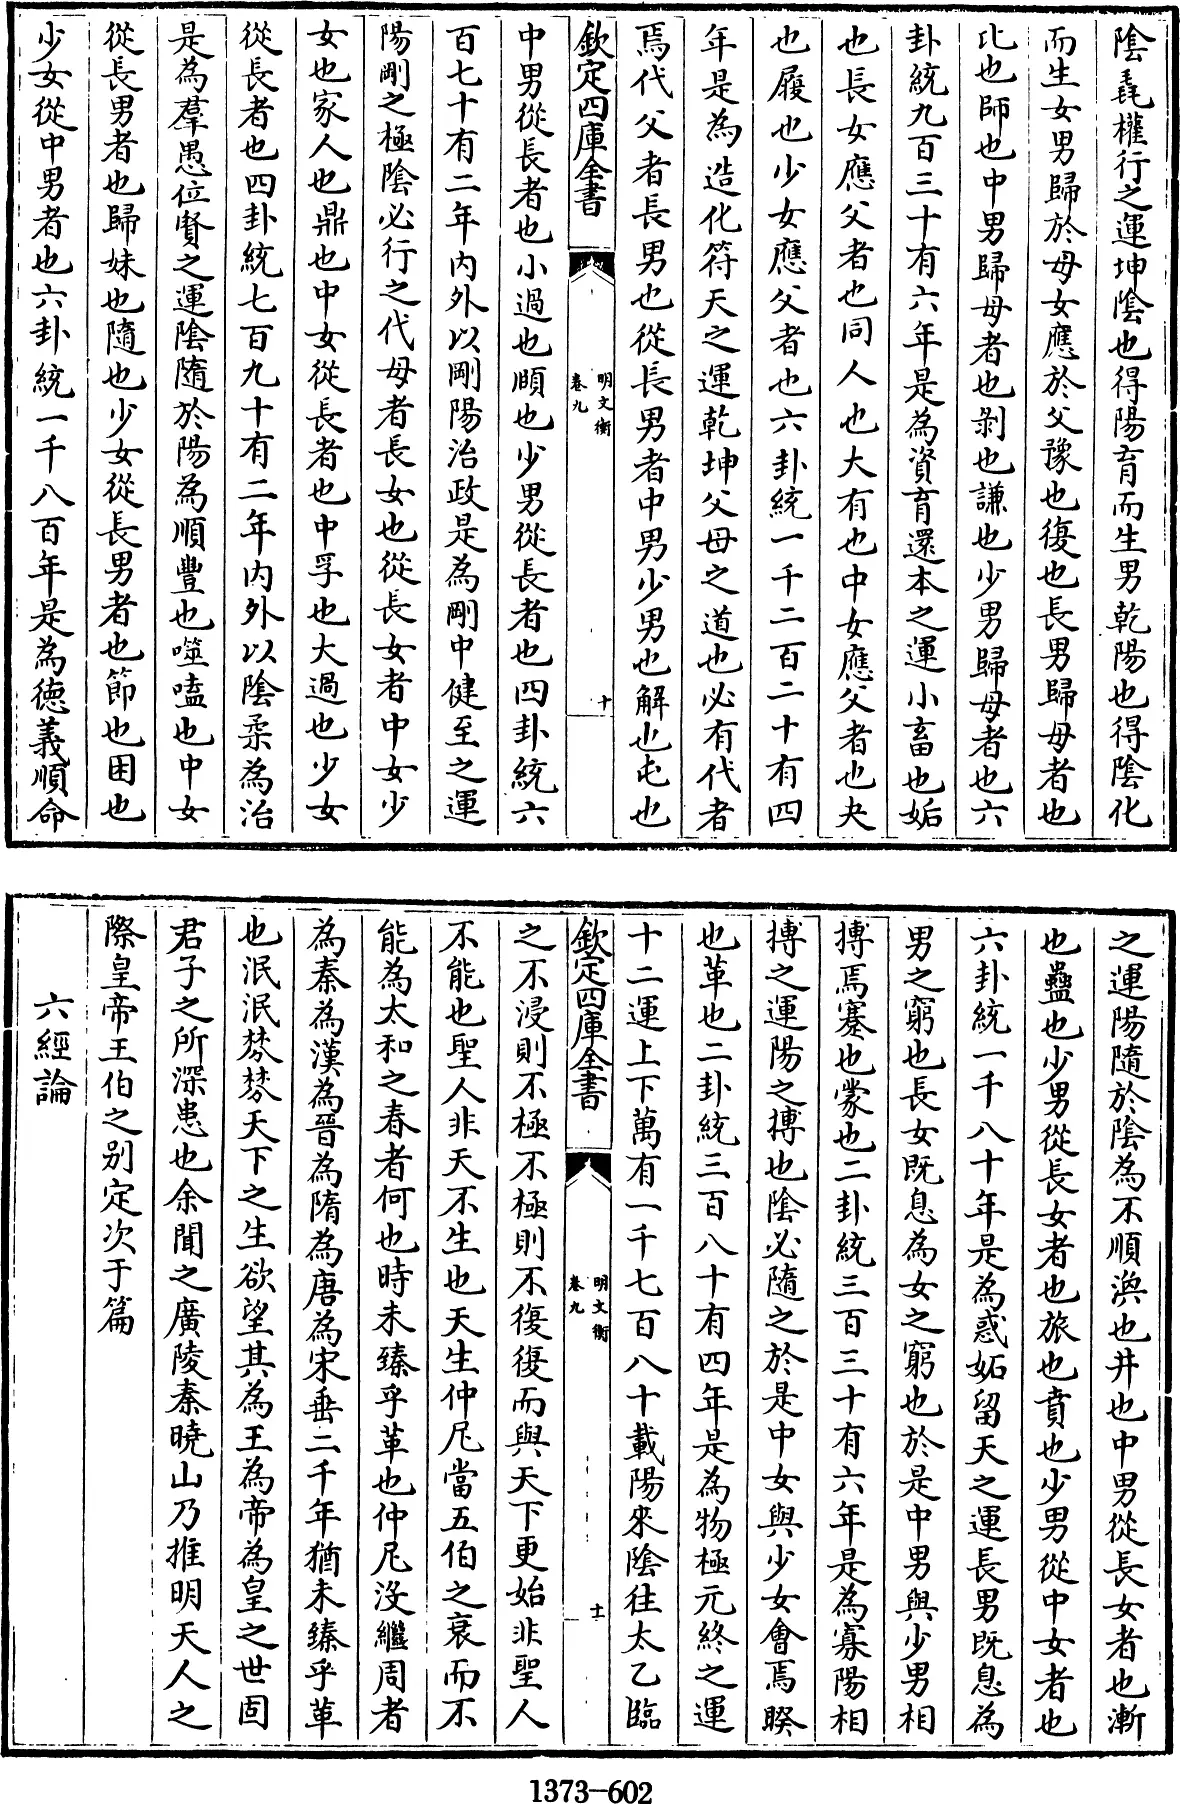 陰毳權行之運坤陰也得陽育而生男乾陽也得陰化
而生女男歸於母女應於父豫也復也長男歸母者也
比也師也中男歸母者也剝也謙也少男歸母者也六
卦統九百三十有六年是為資育還本之運小畜也姤
也長女應父者也同人也大有也中女應父者也夬
也履也少女應父者也六卦統一千二百二十有四
年是為造化符天之運乾坤父母之道也必有代者
焉代父者長男也從長男者中男少男也解也屯也
欽定四庫全書
明文衡
卷九
十
中男從長者也小過也頤也少男從長者也四卦統六
百七十有二年內外以剛陽治政是為剛中健至之運
陽剛之極陰必行之代母者長女也從長女者中女少
女也家人也鼎也中女從長者也中孚也大過也少女
從長者也四卦統七百九十有二年內外以陰柔為治
是為羣愚位賢之運陰隨於陽為順豐也噬嗑也中女
從長男者也歸妹也隨也少女從長男者也節也困也
少女從中男者也六卦統一千八百年是為德義順命
之運陽隨於陰為不順渙也井也中男從長女者也漸
也蠱也少男從長女者也旅也賁也少男從中女者也
六卦統一千八十年是為惑妬留天之運長男既息為
男之窮也長女既息為女之窮也於是中男與少男相
搏焉蹇也蒙也二卦統三百三十有六年是為寡陽相
搏之運陽之搏也陰必隨之於是中女與少女會焉睽
也革也二卦統三百八十有四年是為物極元終之運
十二運上下萬有一千七百八十載陽來陰往太乙臨
欽定四庫全書
明文衡
卷九
十一
之不浸則不極不極則不復復而與天下更始非聖人
不能也聖人非天不生也天生仲尼當五伯之衰而不
能為太和之春者何也時未臻乎革也仲尼沒繼周者
為秦為漢為晉為隋為唐為宋垂二千年猶未臻乎革
也泯泯棼棼天下之生欲望其為王為帝為皇之世固
君子之所深患也余聞之廣陵秦曉山乃推明天人之
際皇帝王伯之別定次于篇
六經論
1373-602